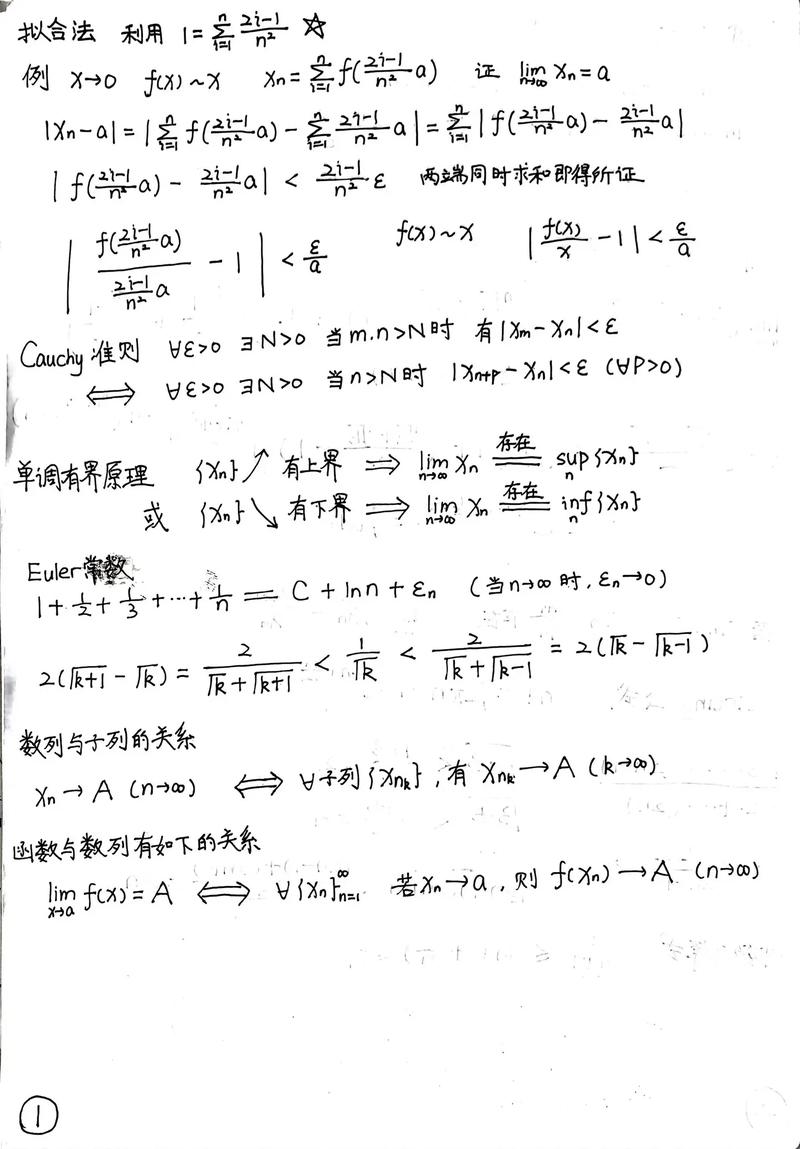 拟合法 利用 1 = ∑_{i=1}^{n} \frac{2i-1}{n²} ☆
例 x→0 f(x)~x x_n = ∑_{i=1}^{n} f(\frac{2i-1}{n²}a) 证 \lim_{n→∞} x_n = a
|x_n - a| = |∑_{i=1}^{n} f(\frac{2i-1}{n²}a) - ∑_{i=1}^{n} \frac{2i-1}{n²}a| = ∑_{i=1}^{n} |f(\frac{2i-1}{n²}a) - \frac{2i-1}{n²}a|
|f(\frac{2i-1}{n²}a) - \frac{2i-1}{n²}a| < \frac{2i-1}{n²}ε 两端同时求和即得所证
|\frac{f(\frac{2i-1}{n²}a)}{\frac{2i-1}{n²}a} - 1| < \frac{ε}{a} f(x)~x |\frac{f(x)}{x} - 1| < \frac{ε}{a}
Cauchy准则 ∀ε>0 ∃N>0 当m.n>N时 有|x_m - x_n|<ε
⟺ ∀ε>0 ∃N>0 当n>N时 |x_{n+p} - x_n|<ε (∀P>0)
单调有界原理 {x_n}↗ 有上界 ⟹ \lim_{n→∞} x_n \overset{存在}{=} \sup_n{x_n}
或 {x_n}↘ 有下界 ⟹ \lim_{n→∞} x_n \overset{存在}{=} \inf_n{x_n}
Euler常数
1 + \frac{1}{2} + \frac{1}{3} + ⋯ + \frac{1}{n} = C + ln n + ε_n (当n→∞时, ε_n→0)
2(√{k+1} - √k) = \frac{2}{√k + √{k+1}} < \frac{1}{√k} < \frac{2}{√k + √{k-1}} = 2(√k - √{k-1})
数列与子列的关系
x_n → A (n→∞) ⟺ ∀子列{x_{n_k}}, 有 x_{n_k} → A (k→∞)
函数与数列有如下的关系
\lim_{x→a} f(x) = A ⟺ ∀{x_n}_{n=1}^{∞} 若x_n→a, 则 f(x_n)→A (n→∞)
①